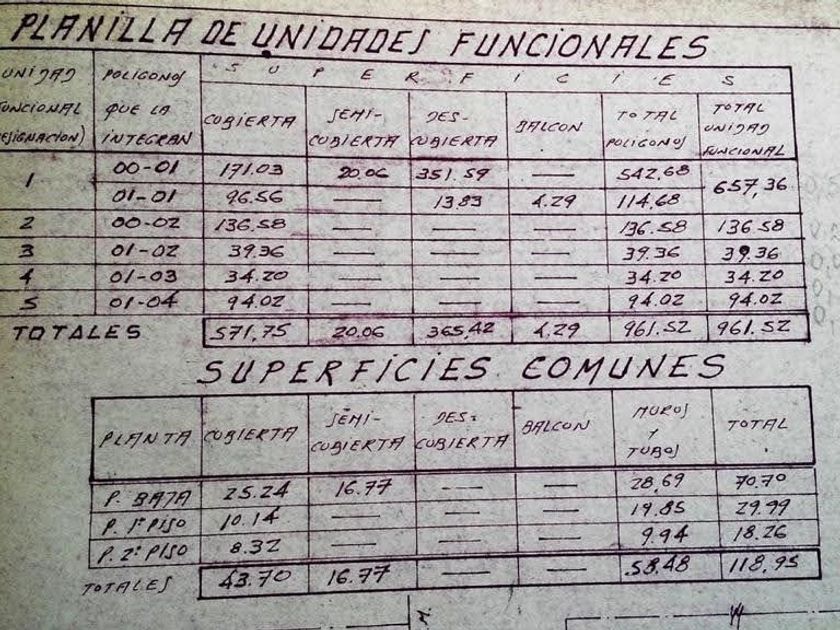 PLANILLA DE UNIDADES FUNCIONALES
UNIDAD POLIGONOS S U P E R F I C I E S
FUNCIONAL QUE LA CUBIERTA SEMI- DES- BALCON TOTAL TOTAL
DESIGNACION) INTEGRAN CUBIERTA CUBIERTA POLIGONOS UNIDAD
FUNCIONAL
1 00-01 171.03 20.06 351.59 — 542,68 657,36
01-01 96.56 — 13.83 4.29 114,68
2 00-02 136,58 — — — 136.58 136.58
3 01-02 39.36 — — — 39.36 39.36
4 01-03 34.20 — — — 34.20 34.20
5 01-04 94.02 — — — 94.02 94.02
TOTALES 571,75 20.06 365,42 4.29 961.52 961.52
SUPERFICIES COMUNES
PLANTA CUBIERTA SEMI- DES- BALCON MUROS TOTAL
CUBIERTA CUBIERTA Y
TUBOS
P. BAJA 25.24 16.77 — — 28,69 70.70
P. 1º PISO 10.14 — — — 19.85 29.99
P. 2º PISO 8.32 — — — 9.94 18.26
TOTALES 43.70 16.77 — — 58.48 118,95